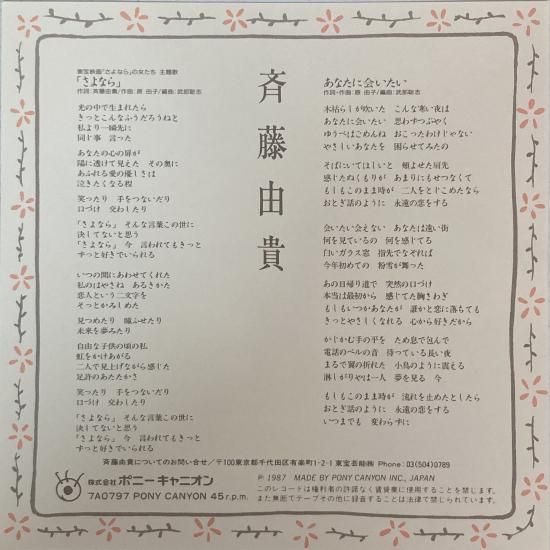 東宝映画「さよなら」の女たち 主題歌
「さよなら」
作詞:斉藤由貴/作曲:原 由子/編曲:武部聡志
光の中で生まれたら
きっとこんなふうだろうねと
私より一瞬先に
同じ事 言った
あなたの心の扉が
陽に透けて見えた その奥に
あふれる愛の優しさは
泣きたくなる程
笑ったり 手をつないだり
口づけ 交わしたり
「さよなら」 そんな言葉この世に
決してないと思う
「さよなら」 今 言われてもきっと
ずっと好きでいられる
いつの間にあわせてくれた
私のはやさね あるきかた
恋人という二文字を
そっとかみしめた
見つめたり 瞳ふせたり
未来を夢みたり
自由な子供の頃の私
虹をかけあがる
二人で見上げながら感じた
足許のあたたかさ
笑ったり 手をつないだり
口づけ 交わしたり
「さよなら」 そんな言葉この世に
決してないと思う
「さよなら」 今 言われてもきっと
ずっと好きでいられる
斉藤由貴
あなたに会いたい
作詞・作曲:原 由子/編曲:武部聡志
木枯らしが吹いた こんな寒い夜は
あなたに会いたい 思わずつぶやく
ゆうべはごめんね おこったわけじゃない
やさしいあなたを 困らせてみたの
そばにいてほしいと 頬よせた肩先
感じたぬくもりが あまりにもせつなくて
もしもこのまま時が 二人をとじこめたなら
おとぎ話のように 永遠の恋をする
会いたい会えない あなたは遠い街
何を見ているの 何を感じてる
白いガラス窓 指先でなぞれば
今年初めての 粉雪が舞った
あの日帰り道で 突然の口づけ
本当は最初から 感じてた胸さわぎ
もしもいつかあなたが 誰かと恋に落ちても
きっとやさしくなれる 心から好きだから
かじかむ手の平を ため息で包んで
電話のベルの音 待っている長い夜
まるで翼の折れた 小鳥のように震える
淋しがりやは一人 夢を見る 今
もしもこのまま時が 流れを止めたとしたら
おとぎ話のように 永遠の恋をする
いつまでも 変わらずに
斉藤由貴についてのお問い合せ/〒100東京都千代田区有楽町1-2-1 東宝芸能㈱ Phone:03(504)0789
株式会社ポニーキャニオン
7A0797 PONY CANYON 45r.p.m.
Ⓟ 1987 MADE BY PONY CANYON INC., JAPAN
このレコードは権利者の許諾なく賃貸業に使用することを禁じます。
また無断でテープその他に録音することは法律で禁じられています。